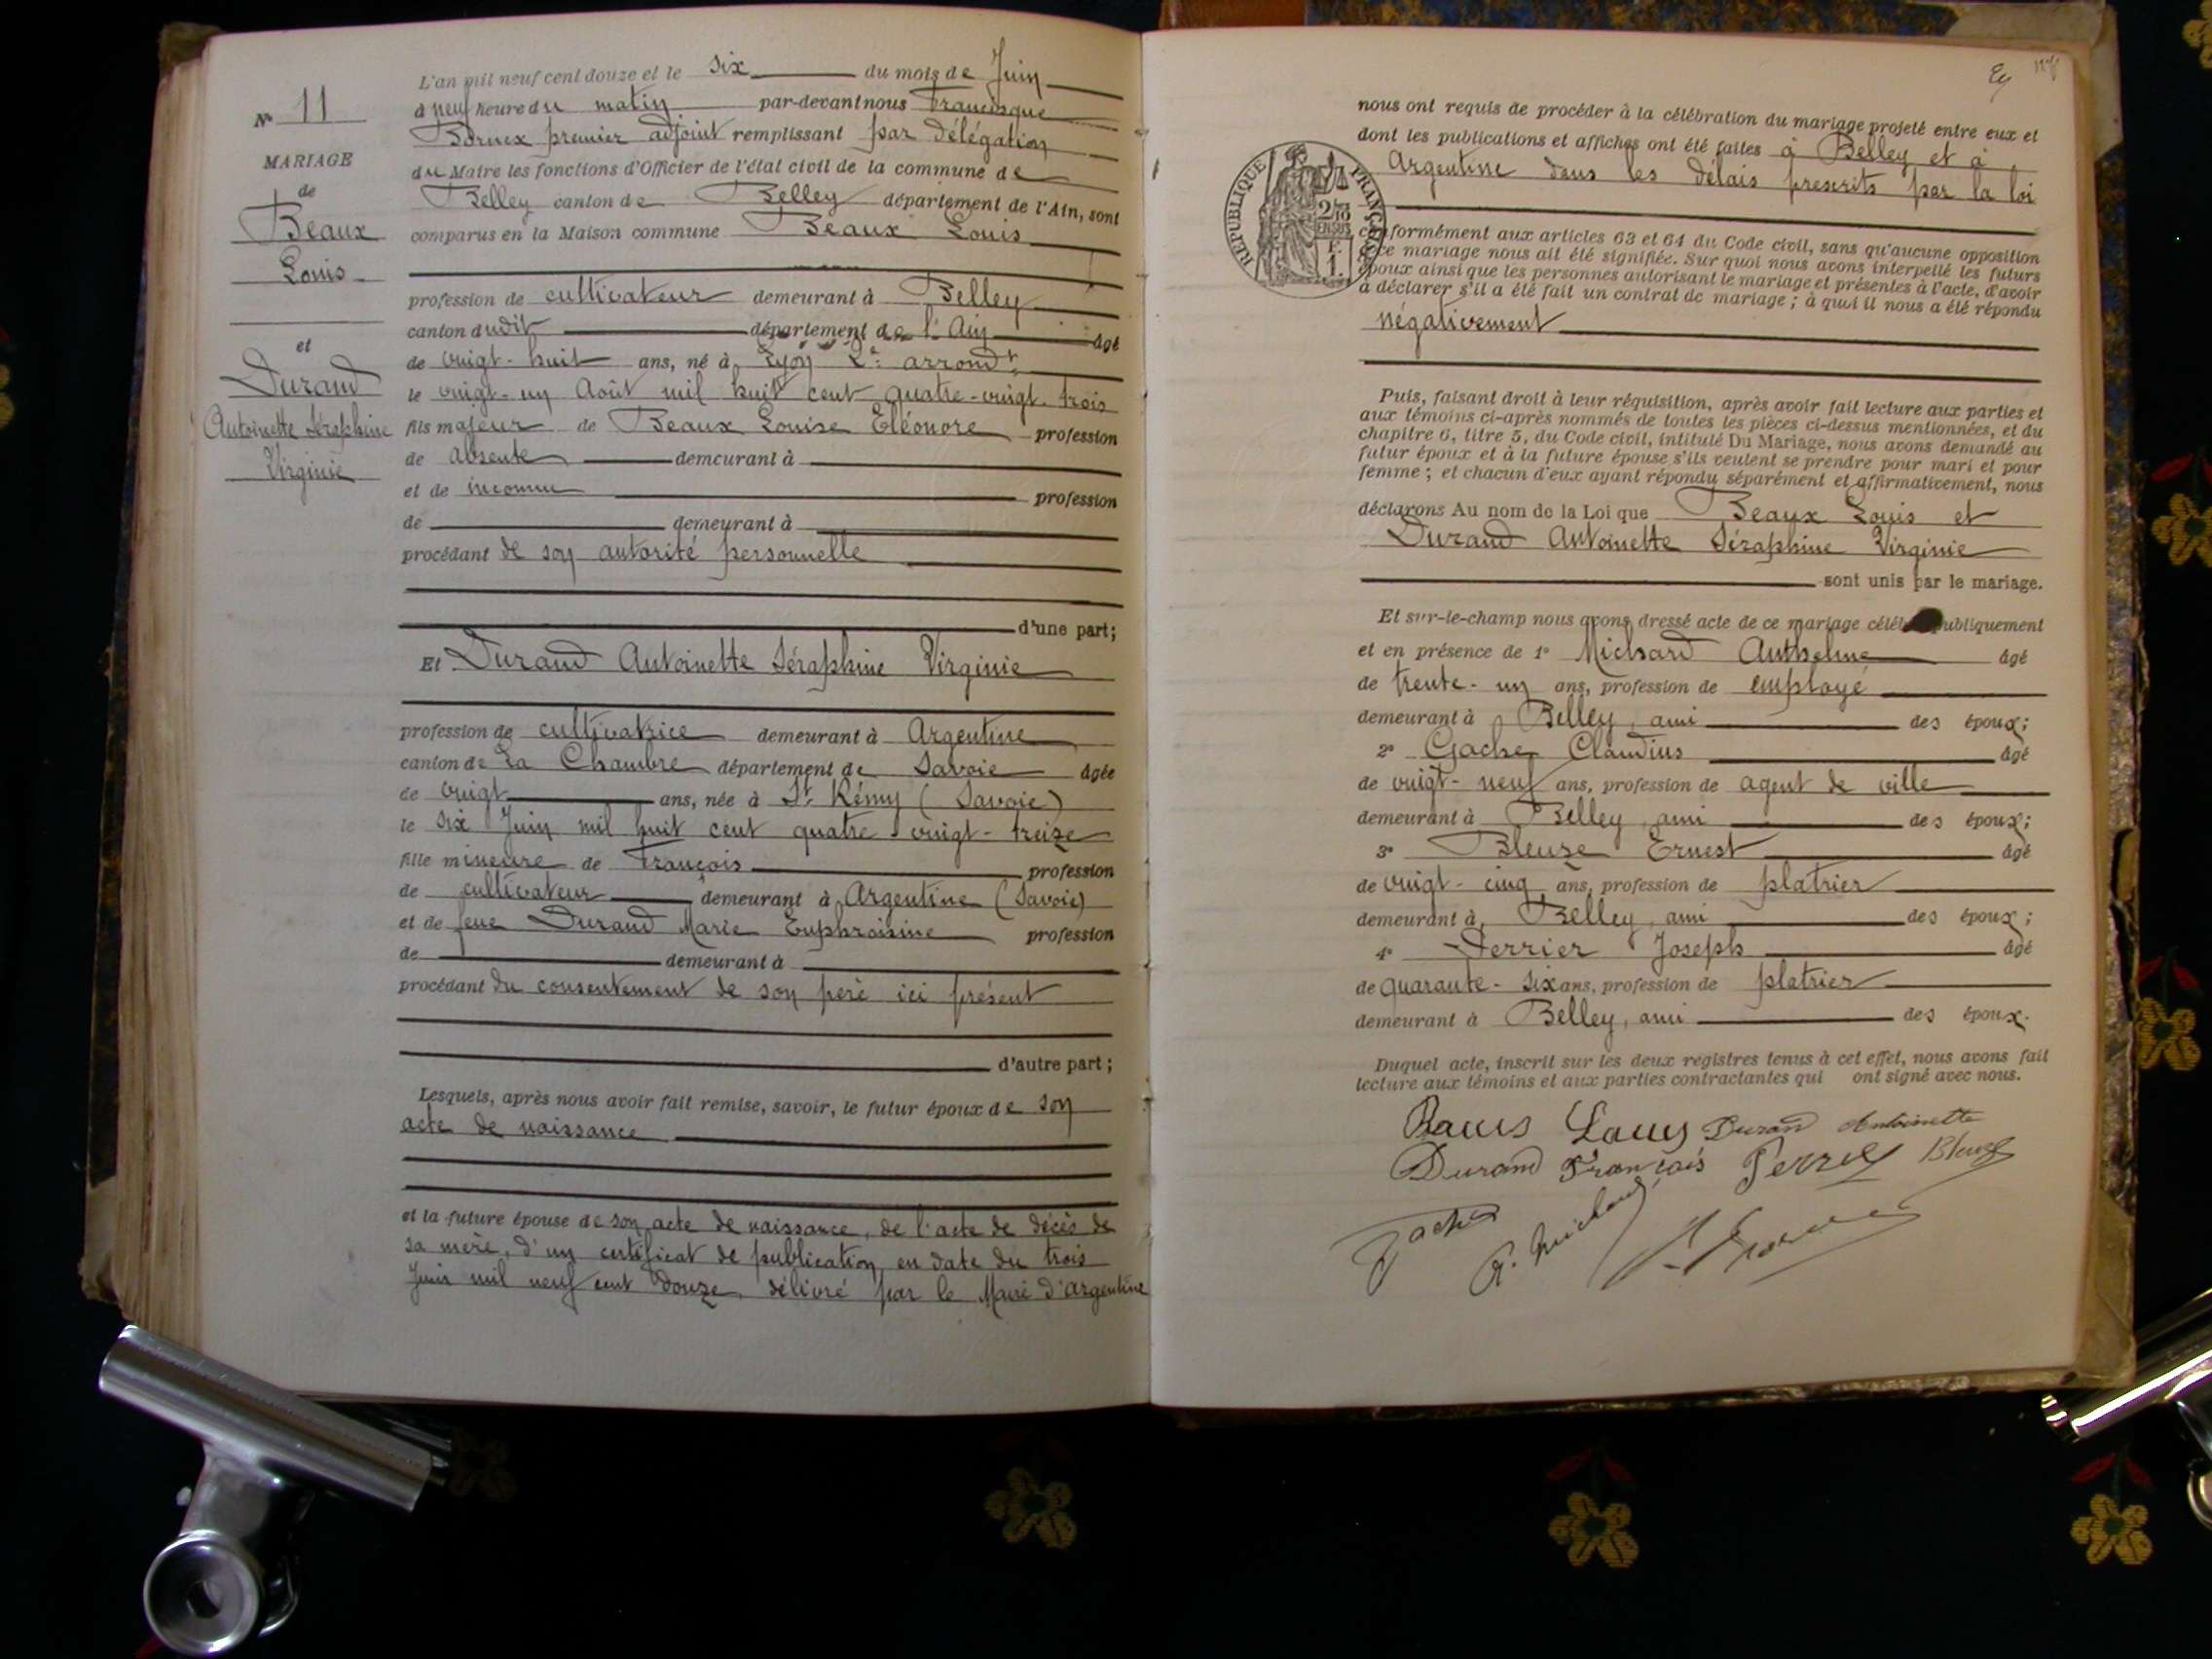 N° 11
MARIAGE
de
Beaux
Louis
et
Durand
Antoinette Séraphine
Virginie
L'an mil neuf cent douze et le six du mois de Juin
à neuf heure du matin par-devant nous Francisque
premier adjoint remplissant par délégation
du Maire les fonctions d'Officier de l'état civil de la commune de
Belley canton de Belley département de l'Ain, sont
comparus en la Maison commune Beaux Louis
profession de cultivateur demeurant à Belley
canton dudit département de l'Ain âgé
de vingt-huit ans, né à Lyon 2e arrondt
le vingt-un Août mil huit cent quatre-vingt-trois
fils majeur de Beaux Louise Eléonore profession
de absente demeurant à
et de inconnu profession
de demeurant à
procédant de son autorité personnelle
d'une part;
Et Durand Antoinette Séraphine Virginie
profession de cultivatrice demeurant à Argentine
canton de La Chambre département de Savoie âgée
de vingt ans, née à St Rémy (Savoie)
le six Juin mil huit cent quatre-vingt-treize
fille mineure de François profession
de cultivateur demeurant à Argentine (Savoie)
et de feue Durand Marie Euphroisine profession
de demeurant à
procédant du consentement de son père ici présent
d'autre part;
Lesquels, après nous avoir fait remise, savoir, le futur époux de son
acte de naissance
et la future épouse de son acte de naissance, de l'acte de décès de
sa mère, d'un certificat de publication en date du trois
Juin mil neuf cent douze, délivré par le Maire d'Argentine
nous ont requis de procéder à la célébration du mariage projeté entre eux et
dont les publications et affiches ont été faites à Belley et à
Argentine dans les délais prescrits par la loi
RÉPUBLIQUE FRANÇAISE
conformément aux articles 63 et 64 du Code civil, sans qu'aucune opposition
à ce mariage nous ait été signifiée. Sur quoi nous avons interpellé les futurs
époux ainsi que les personnes autorisant le mariage et présentes à l'acte, d'avoir
à déclarer s'il a été fait un contrat de mariage; à quoi il nous a été répondu
négativement
Puis, faisant droit à leur réquisition, après avoir fait lecture aux parties et
aux témoins ci-après nommés de toutes les pièces ci-dessus mentionnées, et du
chapitre 6, titre 5, du Code civil, intitulé Du Mariage, nous avons demandé au
futur époux et à la future épouse s'ils veulent se prendre pour mari et pour
femme; et chacun d'eux ayant répondu séparément et affirmativement, nous
déclarons Au nom de la Loi que Beaux Louis et
Durand Antoinette Séraphine Virginie
sont unis par le mariage.
Et sur-le-champ nous avons dressé acte de ce mariage célébré publiquement
et en présence de 1° Michard Anthelme âgé
de trente-un ans, profession de employé
demeurant à Belley, ami des époux;
2° Gache Claudius âgé
de vingt-neuf ans, profession de agent de ville
demeurant à Belley, ami des époux;
3° Bleuze Ernest âgé
de vingt-cinq ans, profession de platrier
demeurant à Belley, ami des époux;
4° Perrier Joseph âgé
de quarante-six ans, profession de platrier
demeurant à Belley, ami des époux.
Duquel acte, inscrit sur les deux registres tenus à cet effet, nous avons fait
lecture aux témoins et aux parties contractantes qui ont signé avec nous.
Louis Durand Antoinette
Durand François Bleuze
Gache A. Michard